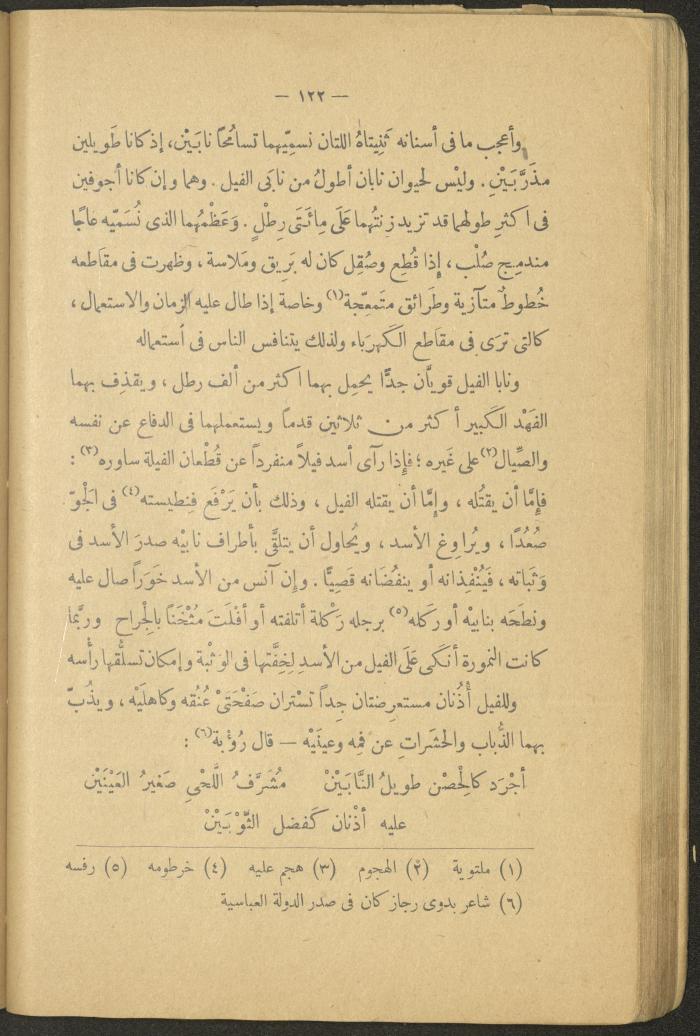 — ١٢٢ —
وأعجب ما فى أسنانه ثَنِيتاهُ اللتان نسمِّيهما تسامُحًا نابَيْن، إذ كانا طَويلين
مذَرَّبَيْنِ . وليْس لحيوان نابان أطولُ من نابَى الفيل . وهما وإن كانا أجوفين
فى اكثرِ طولهما قد تزيد زنتُهما عَلَى مِائَتَى رِطْلٍ . وَعَظْمُهما الذى نُسَمّيه عاجًا
مندمِج صُلْب ، إِذا قُطِع وصُقِل كان له بَرِيق ومَلاسة ، وظهرت فى مقاطعه
خُطوطٌ متآزية وطَرائق متَمعّجة(١) وخاصة إذا طال عليه الزمان والاستعمال ،
كالتى ترَى فى مقاطع الكَهرَباء ولذلك يتنافس الناس فى اُستعماله
ونابا الفيل قويَّان جدًّا يحمِل بهما اكثر من ألف رطل ، ويقذِف بهما
الفَهْد الكَبير أكثر من ثلاثين قدماً ويستعملهما فى الدفاع عن نفسه
والصِّيال(٢) على غَيره ؛ فإِذا رآى أسد فيلاً منفرداً عن قُطْعان الفيلة ساوره(٣) :
فإِمَّا أن يقتُله ، وإمَّا أن يقتله الفيل ، وذلك بأن يَرْفَع فِنطيسته(٤) فى الجْوّ
صُعُدًا ، ويُراوِغ الأسد ، ويُحاول أن يتلقَّى بأطراف نابيْه صدرَ الأسد فى
وَثَباته ، فَيُنْفِذانه أو ينفُضَانه قَصِيًّا . وإن آنس من الأسد خَوَراً صال عليه
ونطَحَه بنابيْه أو ركَله(٥) برجله رَكْلة أتلفته أو أفْلَتَ مُثْخَنًا بالجْراح وربَّما
كانت النمورة أنْكَى عَلَى الفيل من الأسدِ لِخِفَّتها فى الوَثْبة وإمكان تسلُّقها رأْسه
وللفيل أُذُنان مستعرضتان جِداً تسْتران صَفْحَتَىْ عُنُقه وكاهلَيْه ، ويذُبّ
بهما الذُّباب والحشَراتِ عن فمِه وعينَيْه — قال رُؤْبة(٦) :
أجْرَد كالحْصْن طويلُ النَّابَيْنْ مُشَرَّفُ اللَّحْىِ صَغيرُ العَيْنَيْن
عليه أذْنان كَفضل الثَّوْبَيْنْ
(١) ملتوية (٢) الهجوم (٣) هجم عليه (٤) خرطومه (٥) رفسه
(٦) شاعر بدوى رجاز كان فى صدر الدولة العباسية